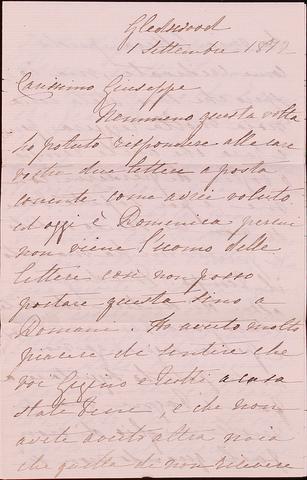 Gledswood
1 Settembre 1872
Carissimo Giuseppe
Nemmeno questa volta
ho potuto rispondere alle care
vostre due lettere a posta
corrente come avrei voluto
ed oggi è Domenica perciò
non viene l'uomo delle
lettere così non posso
postare questa sino a
Domani. Ho avuto molto
piacere di sentire che
voi Gigino e Totti a casa
state bene, e che non
avete avuto altra noia
che quella di non ricevere